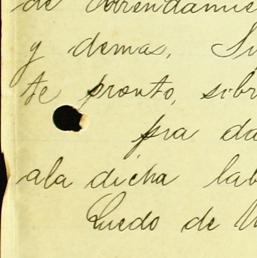 de Arrendamie
y demas. Su
te pronto, sibr
pra da
ala dicha lab
Quedo de V